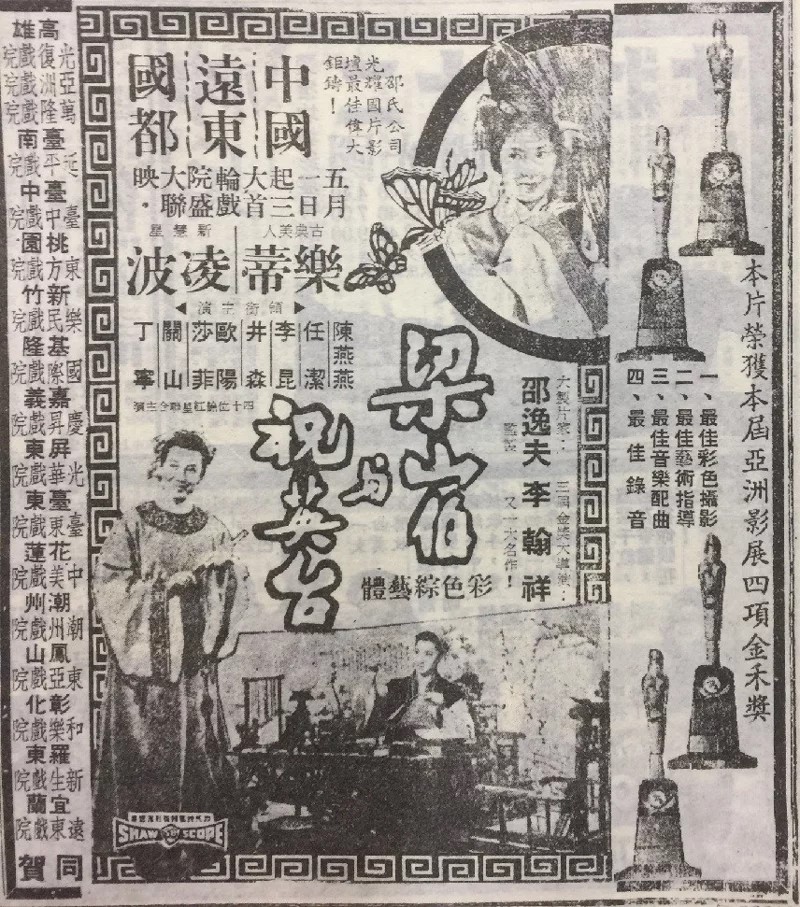 本片榮獲本屆亞洲影展四項金禾獎
一、最佳彩色攝影
二、最佳藝術指導
三、最佳音樂配曲
四、最佳錄音
邵氏公司
光耀國片影
壇最佳偉大
鉅鑄！
中國
遠東
國都
五月一日起三大首輪戲院盛大聯映。
古典美人
樂蒂
新慧星
凌波
領銜主演
陳燕燕
任潔
李昆
井淼
歐陽莎菲
關山
丁寧
梁山伯
与
祝英台
大製片家：
邵逸夫
監製
三屆金獎大導演：
李翰祥
又一大名作！
彩色綜藝體
SHAW SCOPE
高雄
光復戲院
亞洲戲院
萬隆戲院
臺南
延平戲院
臺中
臺中戲院
桃園
東方戲院
新竹
樂民戲院
基隆
國際戲院
嘉義
慶昇戲院
屏東
光華戲院
臺東
臺東戲院
花蓮
中美戲院
潮州
潮州戲院
鳳山
東亞戲院
彰化
和樂戲院
羅東
新生戲院
宜蘭
遠東戲院
同賀